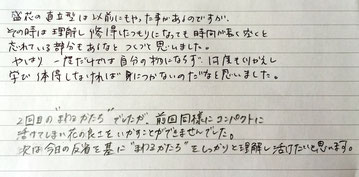 盛花の直立型は以前にもやった事があるのですが、
その時は理解し修得したつもりになっても時間が長く空くと
忘れている部分もあるなと つくづく思いました。
やはり 一度だけでは自分の物にならず 何度もくりかえし
学び 体得しなければ 身につかないのだなと思いました。
2回目の"まわるかたち"でしたが、前回同様にコンパクトに
活けてしまい花の良さをいかすことができませんでした。
次は今日の反省を基に"まわるかたち"をしっかりと理解し活けたいと思います。